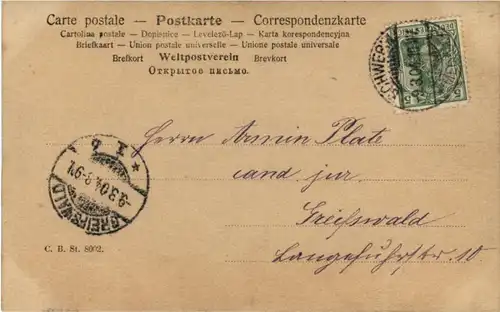 Carte postale — Postkarte — Correspondenzkarte
Cartolina postale — Dopisnice — Levelező-Lap — Karta korespondencyjna
Briefkaart — Union postale universelle — Unione postale universale
Brefkort Weltpostverein Brevkort
Открытое письмо.
SCHWERIN
9.3.04
Herrn Armin Plate
cand. jur.
Greifswald
Langefuhrstr. 10
* I 6
-9.3.04. 8-9V.
GREIFSWALD
C. B. St. 8002.